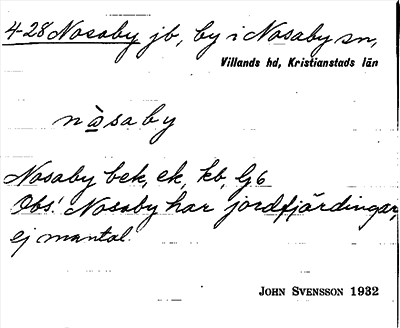 4-28 Nosaby jb, by i Nosaby sn,
Villands hd, Kristianstads län
nòsaby
Nosaby bek, ek, kb, Gj6
Obs! Nosaby har jordfjärdingar,
ej mantal.
JOHN SVENSSON 1932